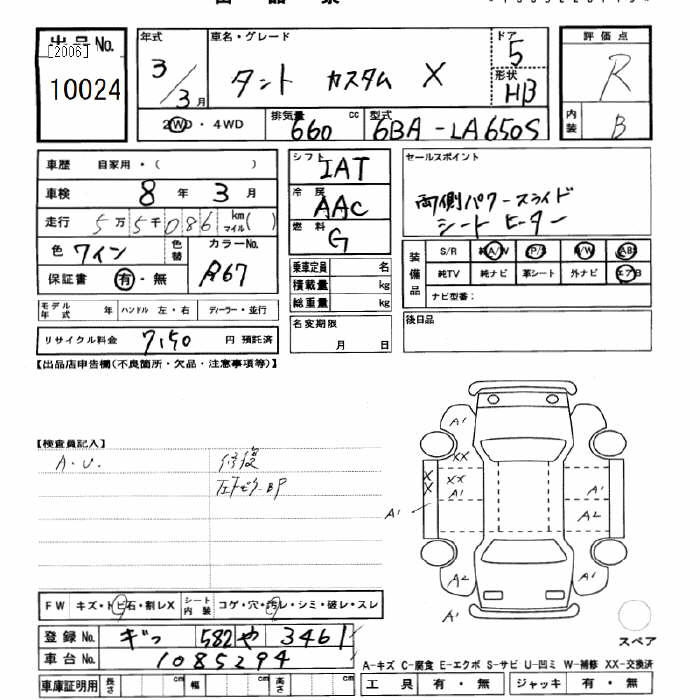 出品票
出品No.
[2006]
10024
年式
3/3月
車名・グレード
タント カスタム X
ドア
5
形状
HB
評価点
R
内装
B
2WD・4WD
排気量
660 cc
型式
6BA-LA650S
車歴 自家用・( )
車検 8年3月
走行 5万5千086 km マイル( )
色 ワイン
色替
カラーNo.
R67
保証書 有・無
モデル年式 年 ハンドル 左・右 ディーラー・並行
リサイクル料金 7,150 円 預託済
シフト
IAT
冷房
AAC
燃料
G
乗車定員 名
積載量 kg
総重量 kg
名変期限
月 日
セールスポイント
両側パワースライド
シートヒーター
装備品
S/R 純A/W P/S P/W ABS
純TV 純ナビ 革シート 外ナビ エアB
ナビ型番:
後日品
【出品店申告欄(不良箇所・欠品・注意事項等)】
【検査員記入】
A・U. 修復
A1
XX
X
X
XX
A1
A1
A1
A2
A2
A1
A1
FW キズ・トビ石・割レX シート内装 コゲ・穴・汚レ・シミ・破レ・スレ
登録No. ギフ 582 や 3461
車台No. 1085294
スペア
A-キズ C-腐食 E-エクボ S-サビ U-凹ミ W-補修 XX-交換済
車庫証明用 長さ cm 幅 cm 高さ cm
工具 有・無 ジャッキ 有・無